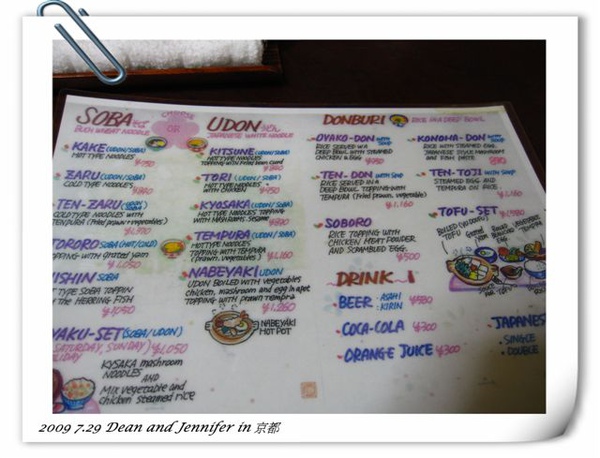 SOBA そば
BUCK WHEAT NOODLE
CHOOSE
OR
UDON うどん
JAPANESE WHITE NOODLE
KAKE (UDON/SOBA)
HOT TYPE NOODLES
ZARU (UDON/SOBA)
COLD TYPE NOODLES
TEN-ZARU
COLD TYPE NOODLES WITH
TEMPURA (Fried prawn + vegetables)
TORORO SOBA (HOT/COLD)
TOPPING with grated yam
¥1,050
NISHIN SOBA
HOT TYPE SOBA TOPPED
the HERRING FISH
¥1050
YAKU-SET (SOBA/UDON)
SATURDAY, SUNDAY) ¥1,050
HOLIDAY
KYSAKA mashroom
NOODLES
AND
Mix vegetable and
chicken steamed rice
KITSUNE (UDON/SOBA)
HOT TYPE NOODLES
TOPPING with Fried bean curd
TORI (UDON/SOBA)
HOT TYPE NOODLES +
CHICKEN
KYOSAKA (UDON/SOBA)
HOT TYPE NOODLES TOPPING
WITH MASHROOMS, SESAME
TEMPURA (UDON/SOBA)
HOT TYPE NOODLES
TOPPING with TEMPURA
(Prawn, vegetables)
NABEYAKI UDON
UDON BOILED with vegetables
chicken, mashroom and egg in a pot
TOPPING with prawn tempra
¥1,260
NABEYAKI
HOT POT
DONBURI
RICE IN A DEEP BOWL
OYAKO-DON with Soup
RICE SERVED IN A
DEEP BOWL WITH STEAMED
CHICKEN & EGG
TEN-DON with Soup
RICE SERVED IN A
DEEP BOWL TOPPING WITH
TEMPURA (Fried prawn, vegetable)
¥1,160
SOBORO
RICE TOPPING WITH
CHICKEN MEAT POWDER
AND SCRAMBLED EGG.
¥500
KONOHA-DON with Soup
RICE WITH STEAMED EGG,
JAPANESE STYLE MUSHROOM
AND FISH PASTE
TEN-TOJI with Soup
STEAMED EGG AND
TEMPURA ON RICE
¥1,160
TOFU-SET
DRINK
BEER : ASAHI
KIRIN
¥580
COCA-COLA ¥300
ORANGE JUICE ¥300
JAPANES
SINGLE
DOUBLE
2009 7.29 Dean and Jennifer in 京都